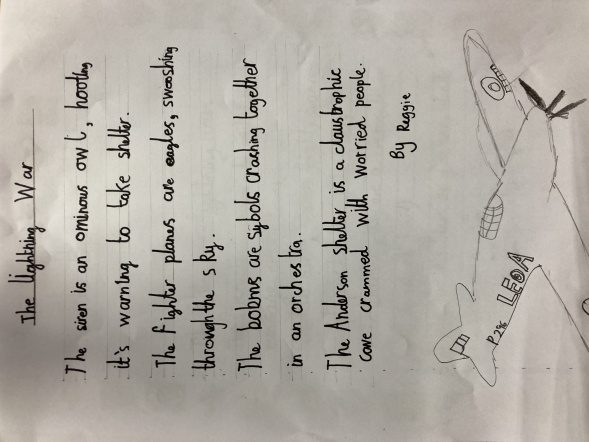 The lightning War
The siren is an ominous owl, hooting
it's warning to take shelter.
The fighter planes are eagles, swooshing
through the sky.
The bobms are sybols crashing together
in an orchestra.
The Anderson shelter is a claustrophic
cave crammed with worried people.
By Reggie